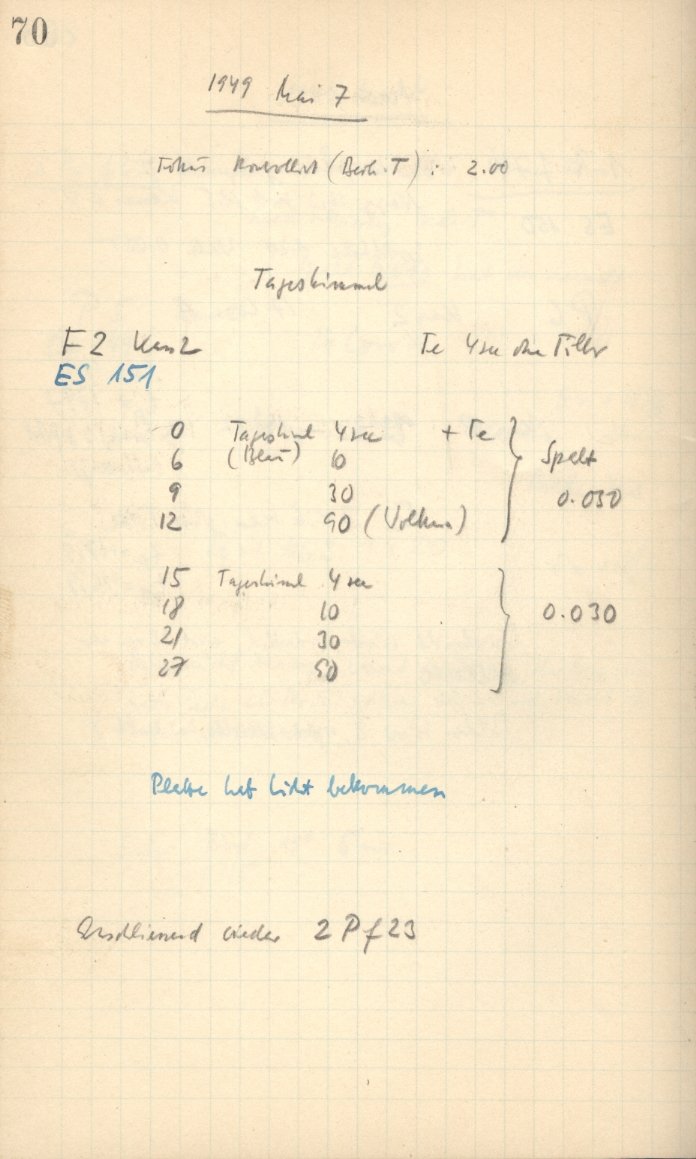 70
1949 Mai 7
Fokus kontrolliert (Beob. T) : 2.00
Tageshimmel
F2 Kam2 Te 4sec ohne Filter
ES 151
0 Tageshimmel 4sec + Te
6 (Blau) 10 Spalt
9 30 0.030
12 90 (Wolken)
15 Tageshimmel 4sec
18 10 0.030
21 30
27 90
Platte hat Licht bekommen
Anschliessend wieder 2 P f 23